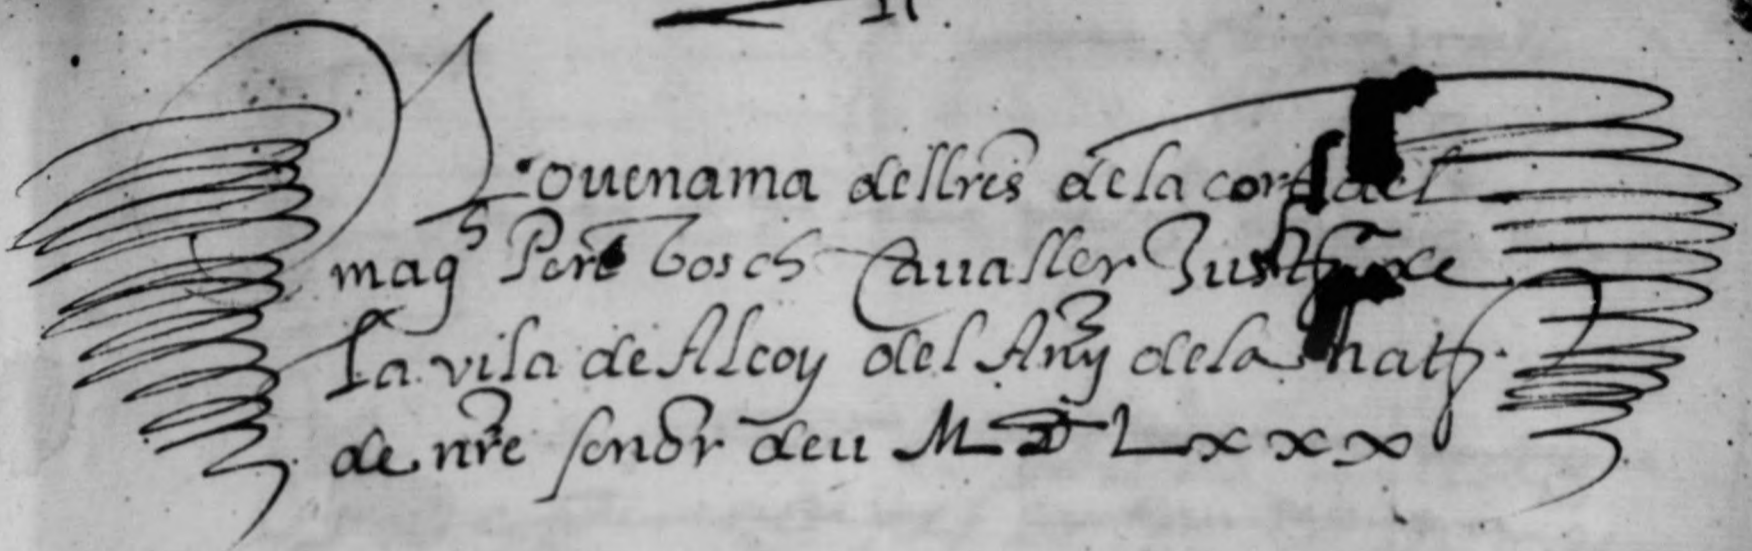 Jouenama de llres de la cort del
magch Pere Bosch Caualler Justa de
la vila de Alcoy del Any de la natt
de nre senor deu M D Lxxx